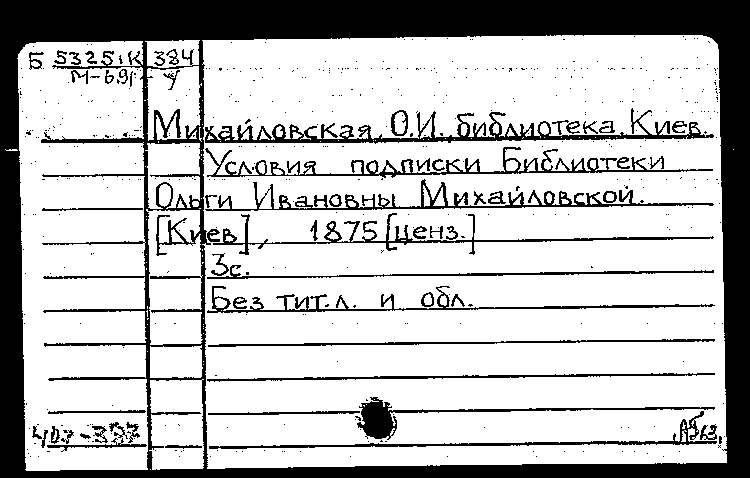 Б 5325.1К 384
М-691 У
Михайловская, О.И., библиотека. Киев.
Условия подписки Библиотеки
Ольги Ивановны Михайловской.
[Киев], 1875 [ценз.]
3с.
Без тит.л. и обл.